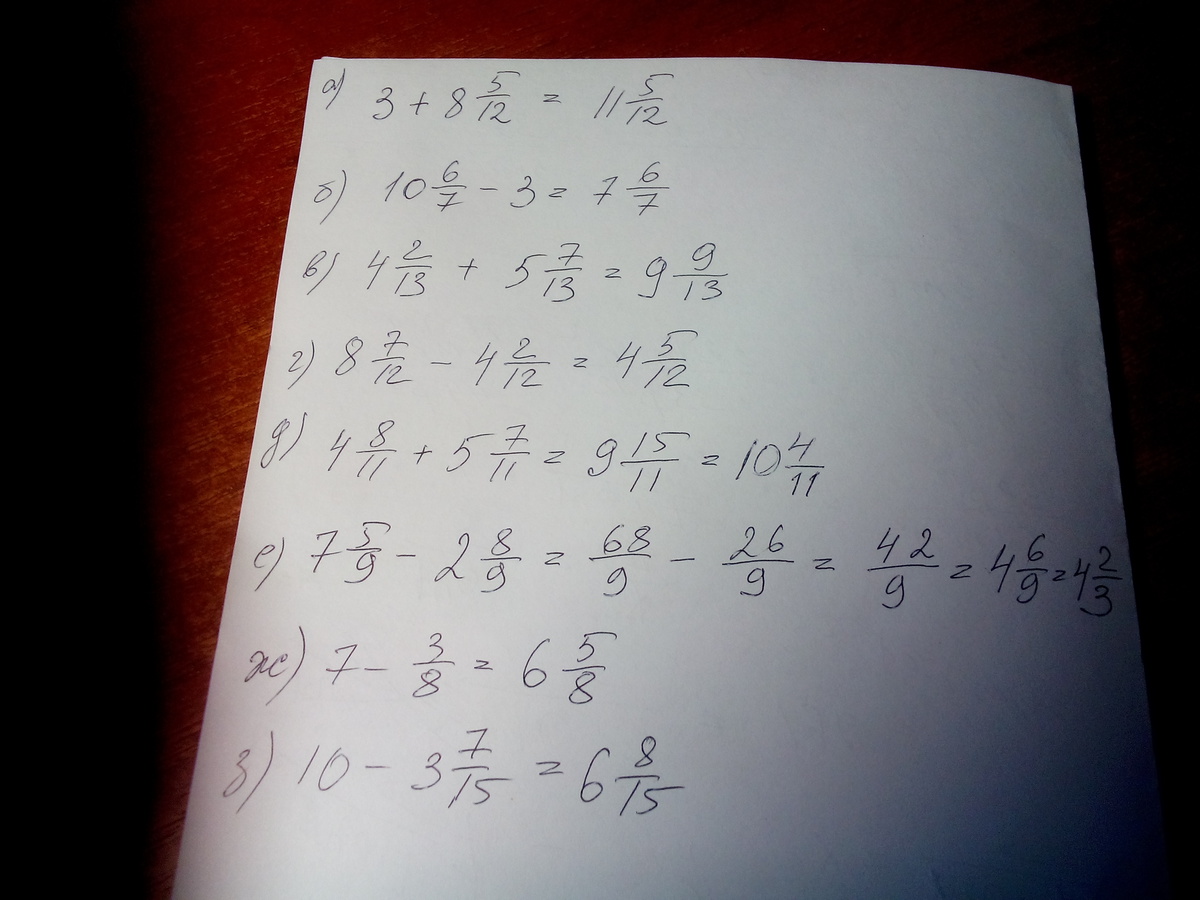 а) 3 + 8 5/12 = 11 5/12
б) 10 6/7 - 3 = 7 6/7
в) 4 2/13 + 5 7/13 = 9 9/13
г) 8 7/12 - 4 2/12 = 4 5/12
д) 4 8/11 + 5 7/11 = 9 15/11 = 10 4/11
е) 7 5/9 - 2 8/9 = 68/9 - 26/9 = 42/9 = 4 6/9 = 4 2/3
ж) 7 - 3/8 = 6 5/8
з) 10 - 3 7/15 = 6 8/15